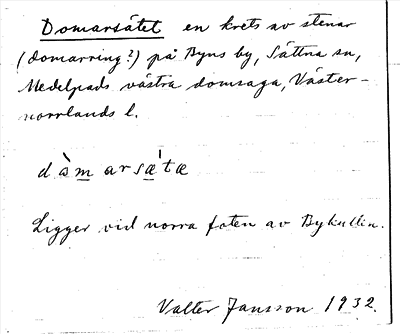 Domarsätet en krets av stenar
(domarring?) på Byns by, Sättna sn,
Medelpads västra domsaga, Väster-
norrlands l.
dὰm arsǽtæ
Ligger vid norra foten av Bykullen.
Valter Jansson 1932.